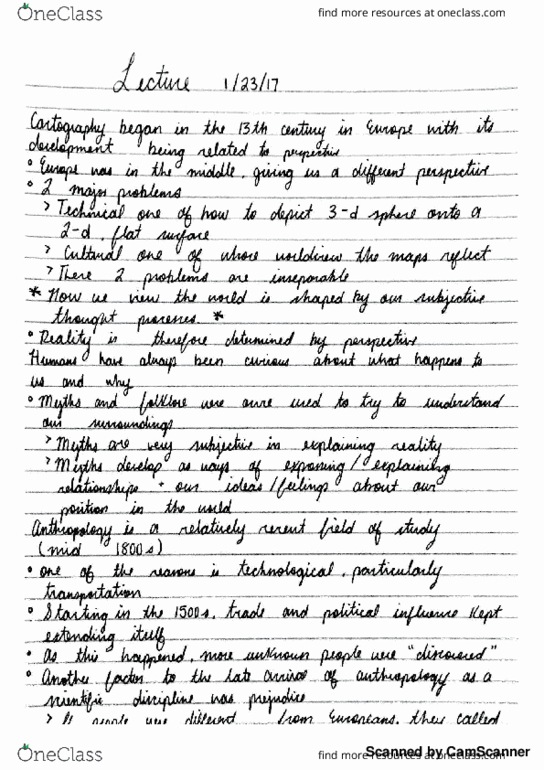 OneClass find more resources at oneclass.com
Lecture 1/23/17
Cartography began in the 13th century in Europe with its
development being related to perspective
• Europe was in the middle, giving us a different perspective
• 2 major problems
> Technical one of how to depict 3-d sphere onto a
2-d, flat surface
> Cultural one of whose worldview the maps reflect
> These 2 problems are inseparable
* How we view the world is shaped by our subjective
thought processes. *
• Reality is therefore determined by perspective
Humans have always been curious about what happens to
us and why
• Myths and folklore were once used to try to understand
our surroundings
> Myths are very subjective in explaining reality
> Myths develop as ways of exposing/explaining
relationships + our ideas/feelings about our
position in the world
Anthropology is a relatively recent field of study
(mid 1800s)
• one of the reasons is technological, particularly
transportation
• Starting in the 1500s, trade and political influence kept
extending itself
• As this happened, more unknown people were "discovered"
• Another factor to the late arrival of anthropology as a
scientific discipline was prejudice
> If people were different from Europeans, they called
OneClass find more resources at oneclass.com
Scanned by CamScanner